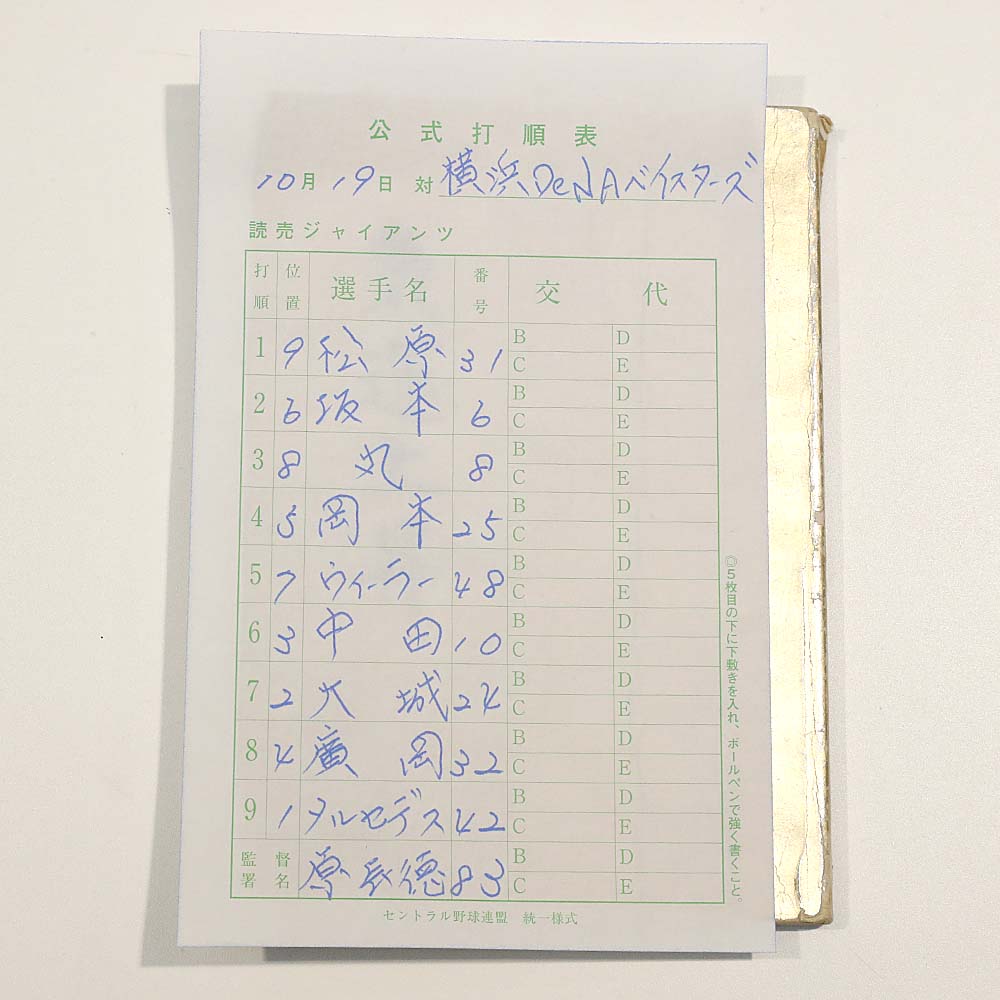 公式打順表
10月19日 対 横浜DeNAベイスターズ
読売ジャイアンツ
打順 位置 選手名 番号 交代
1 9 松原 31 B D
C E
2 6 坂本 6 B D
C E
3 8 丸 8 B D
C E
4 5 岡本 25 B D
C E
5 7 ウィーラー 48 B D
C E
6 3 中田 10 B D
C E
7 2 大城 24 B D
C E
8 4 廣岡 32 B D
C E
9 1 メルセデス 42 B D
C E
監督署名 原辰徳 83 B D
C E
セントラル野球連盟 統一様式
◎5枚目の下に下敷きを入れ、ボールペンで強く書くこと。